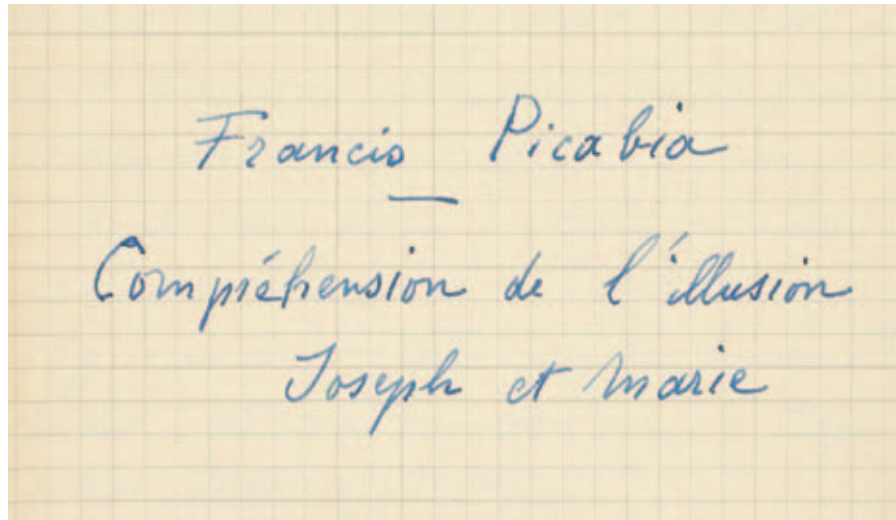 Francis Picabia
—
Compréhension de l'illusion
Joseph et Marie